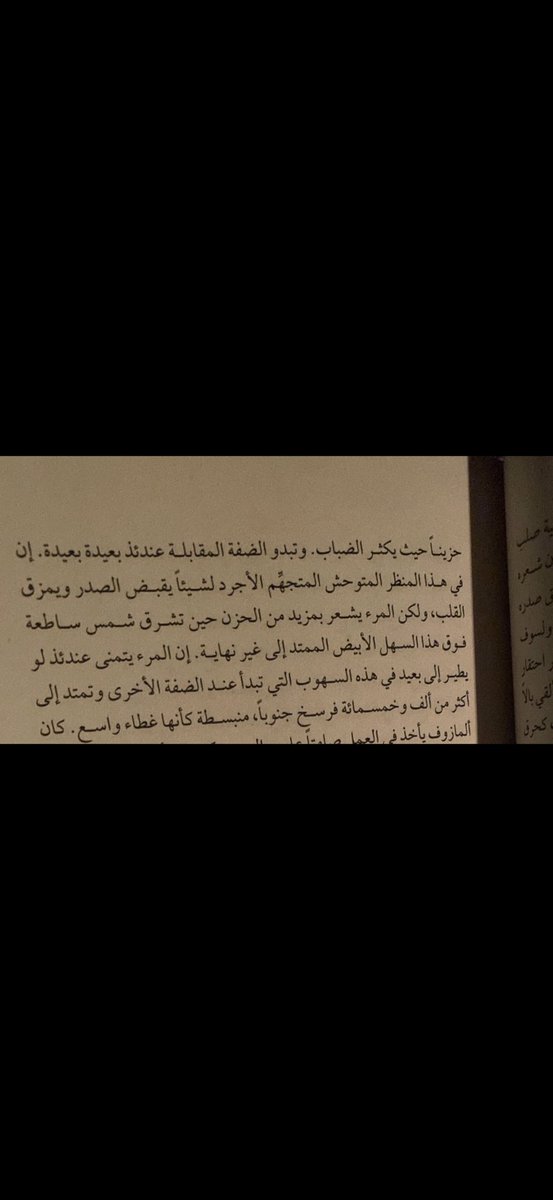 حزينـاً حيث يكثـر الضباب. وتبدو الضفة المقابلـة عندئذ بعيدة بعيدة. إن
في هـذا المنظر المتوحش المتجهِّم الأجرد لشيئاً يقبـض الصدر ويمزق
القلب، ولكن المرء يشـعر بمزيد من الحزن حين تشـرق شـمس سـاطعة
فـوق هذا السـهل الأبيض الممتد إلى غير نهايـة. إن المرء يتمنى عندئذ لو
يطيـر إلى بعيد في هذه السـهوب التي تبدأ عنـد الضفة الأخرى وتمتد إلى
أكثر من ألف وخمسـمائة فرسـخ جنوباً، منبسـطة كأنها غطاء واسـع. كان
ألمازوف يأخذ في العمل صامتاً
صلب
شـعره
صدره
ولسوف
احتقار